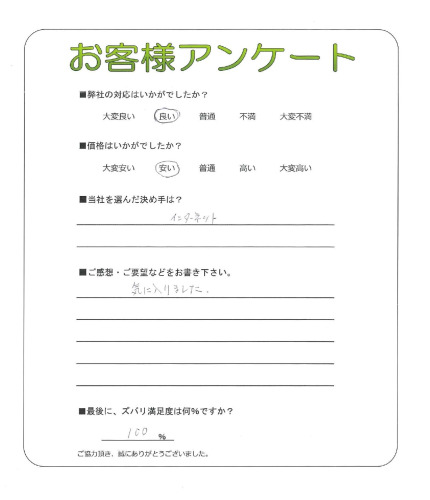 お客様アンケート
■弊社の対応はいかがでしたか？
大変良い 良い 普通 不満 大変不満
■価格はいかがでしたか？
大変安い 安い 普通 高い 大変高い
■当社を選んだ決め手は？
インターネット
■ご感想・ご要望などをお書き下さい。
気に入りました。
■最後に、ズバリ満足度は何%ですか？
100 %
ご協力頂き、誠にありがとうございました。